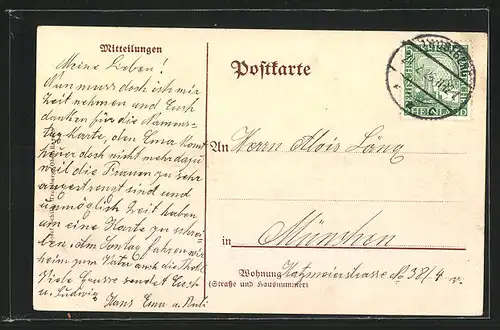 Mitteilungen
Meine Lieben!
Nun muss doch ich mir
Zeit nehmen und Euch
danken für die Namens-
tag Karte, den Ema konnt
heuer doch nicht mehr dazu
weil die Frauen zu sehr
angestrengt sind und
unmöglich Zeit haben
um eine Karte zu schrei-
ben. Am Sonntag fahren wir
heim zum Vater auch die
Viele Grüsse sendet Euch
u. Ludwig
Hans Ema u. Rudi
Postkarte
An Herrn Alois Läng
in München
Wohnung Hatzmeierstrasse No 38/4 r.
(Straße und Hausnummer)